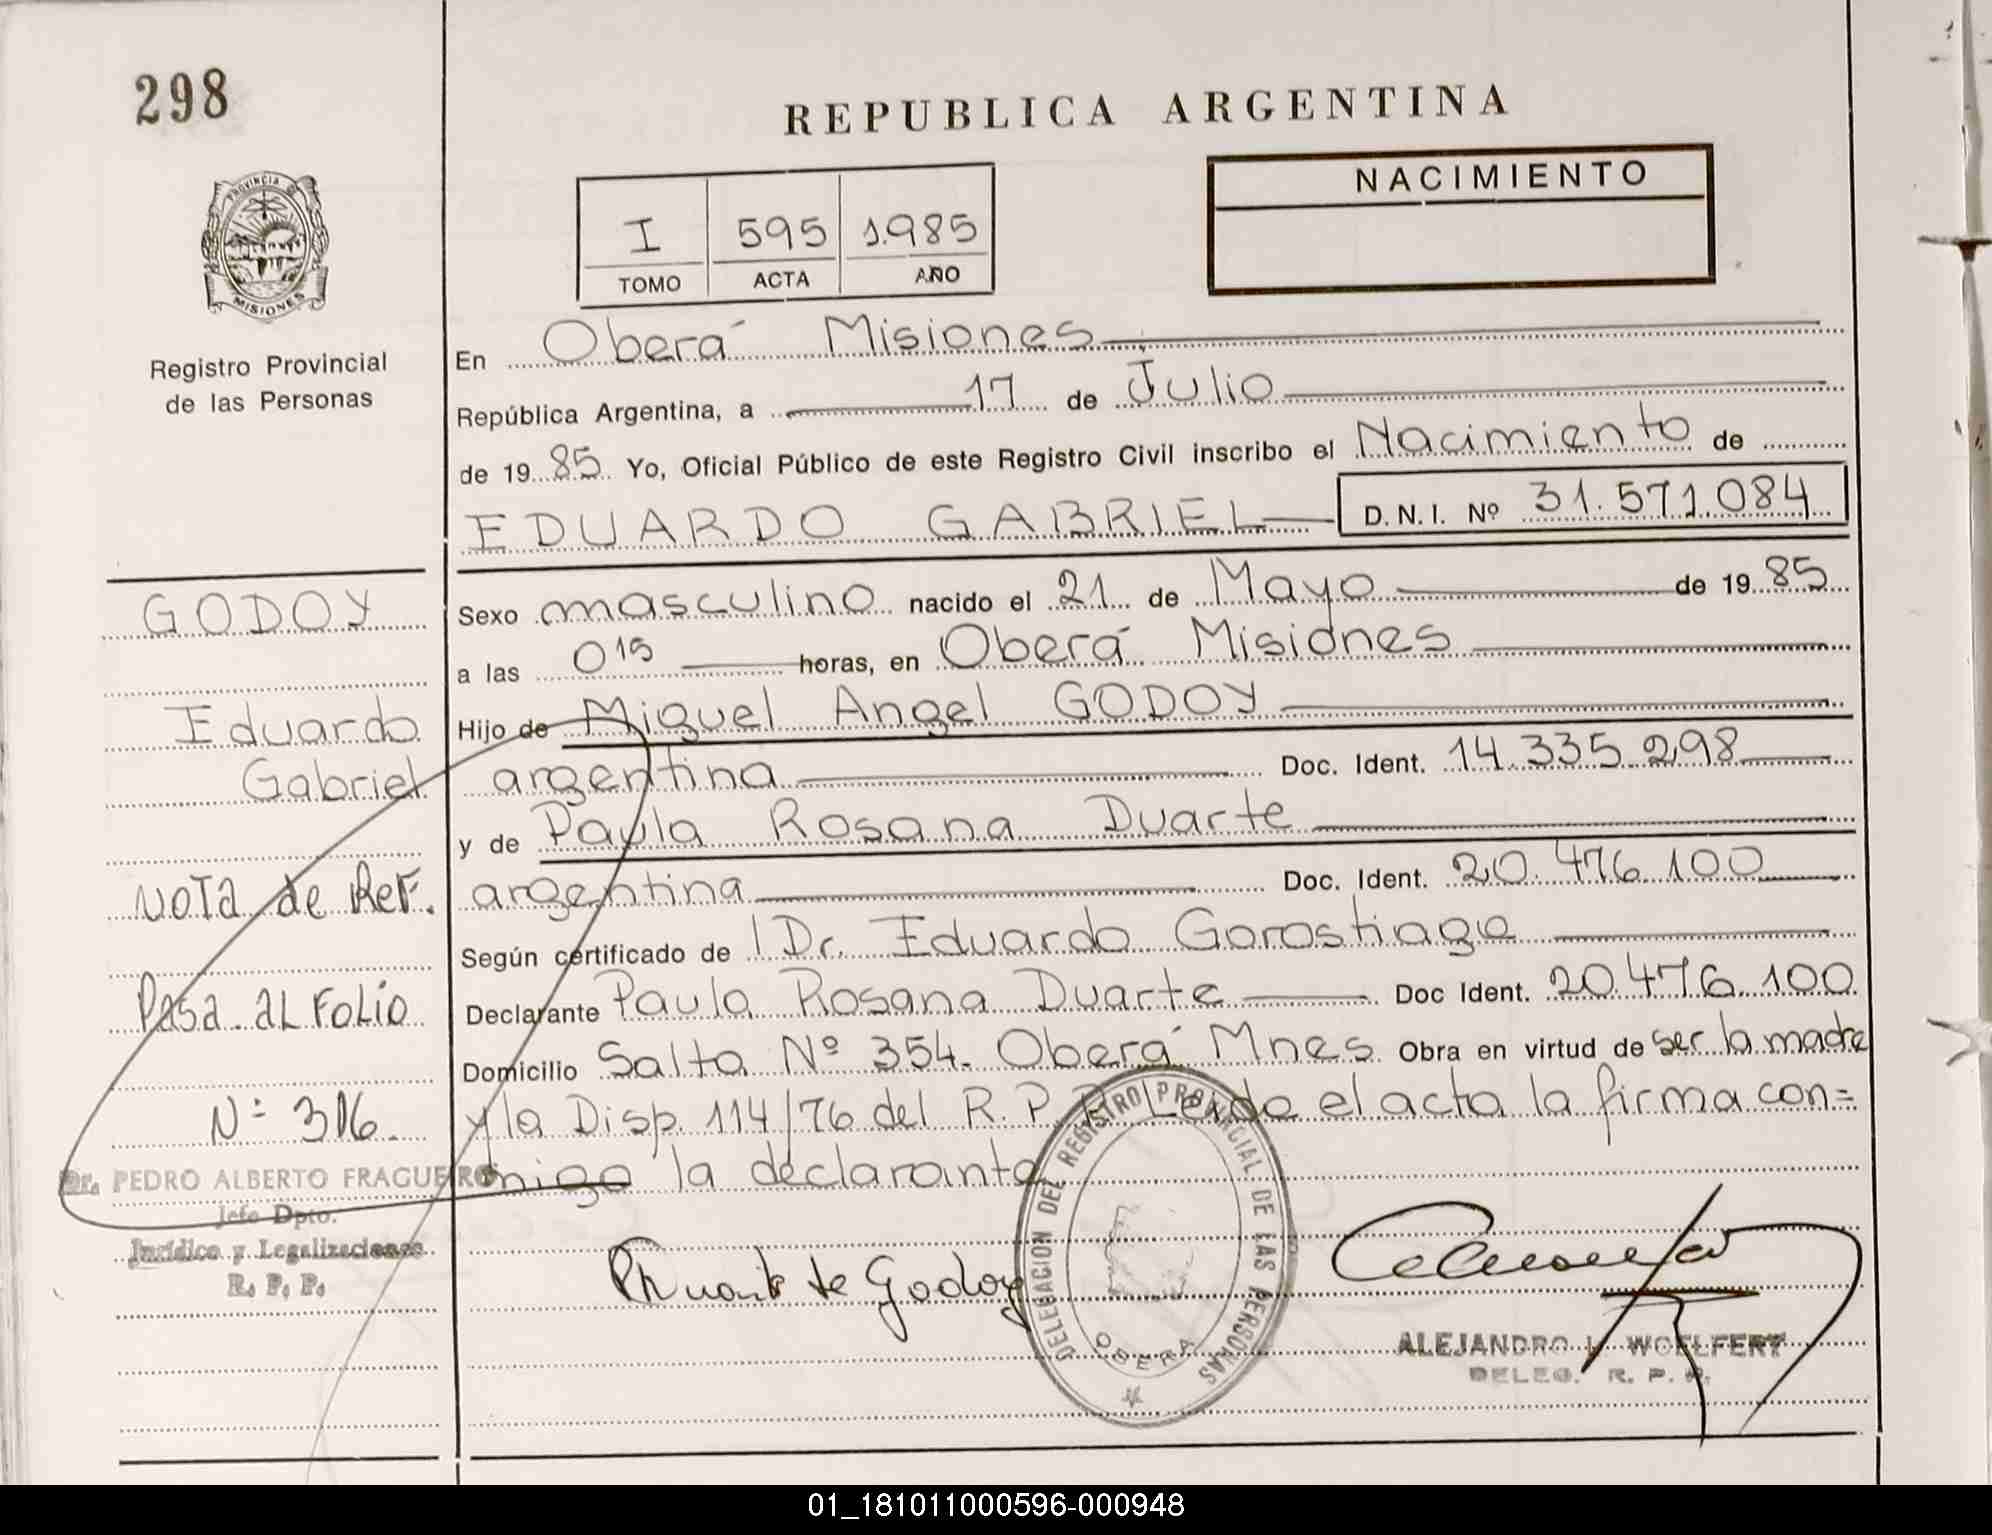 298
REPUBLICA ARGENTINA
PROVINCIA DE
MISIONES
Registro Provincial
de las Personas
I 595 1.985
TOMO ACTA AÑO
NACIMIENTO
En Oberá Misiones
República Argentina, a 17 de Julio
de 1985 Yo, Oficial Público de este Registro Civil inscribo el Nacimiento de
EDUARDO GABRIEL D.N.I. Nº 31.571.084
GODOY
Eduardo
Gabriel
NOTA de Ref.
Pasa al Folio
Nº 306.
Dr. PEDRO ALBERTO FRAGUEIRO
Jefe Dpto.
Jurídico y Legalizaciones
R. P. P.
Sexo masculino nacido el 21 de Mayo de 1985
a las 0 15 horas, en Oberá Misiones
Hijo de Miguel Angel GODOY
argentina Doc. Ident. 14.335.298
y de Paula Rosana Duarte
argentina Doc. Ident. 20.476.100
Según certificado de Dr. Eduardo Gorostiago
Declarante Paula Rosana Duarte Doc Ident. 20.476.100
Domicilio Salta Nº 354. Oberá Mnes Obra en virtud de ser la madre
y la Disp. 114/76 del R. P. P. Leída el acta la firma con=
migo la declarante
Duarte de Godoy
DELEGACION DEL REGISTRO PROVINCIAL DE LAS PERSONAS
OBERA
ALEJANDRO WOELFERT
DELEG. R. P. P.
01_181011000596-000948